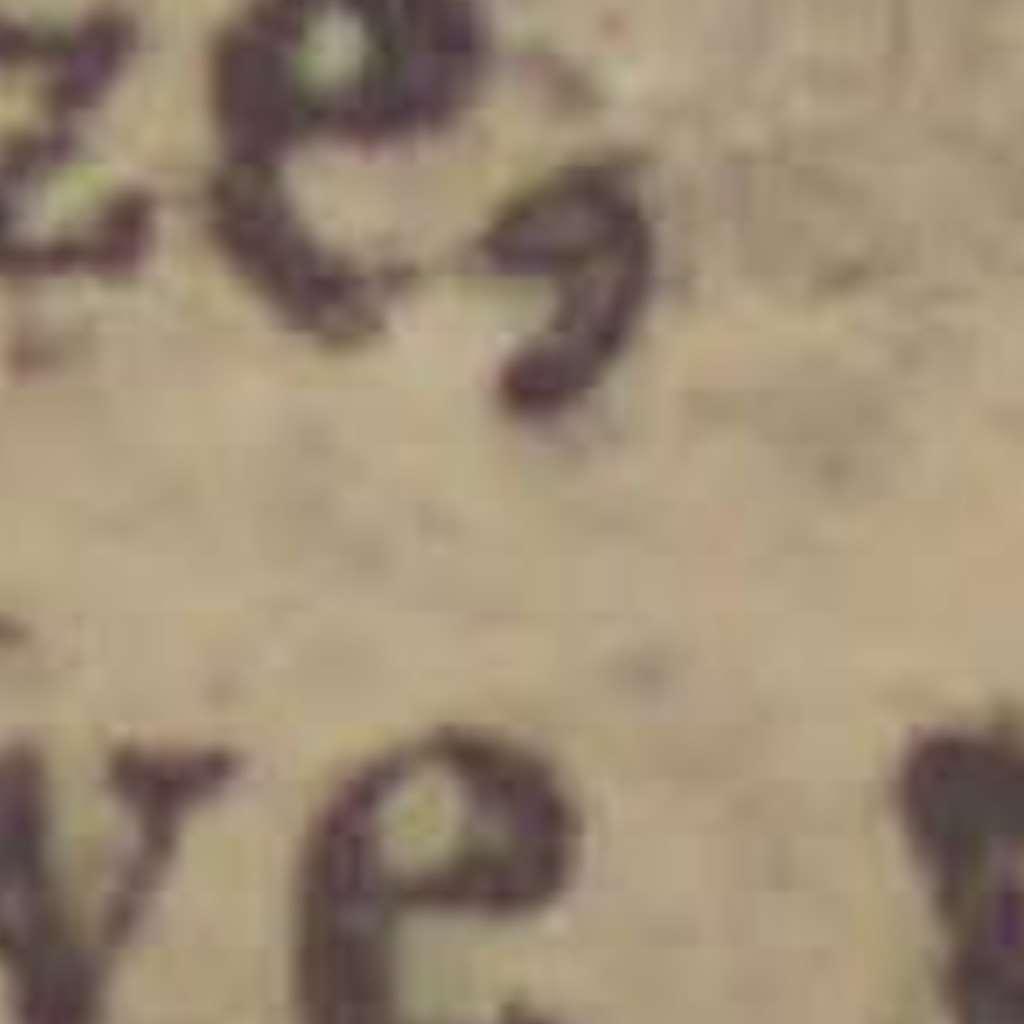 ze,
ve